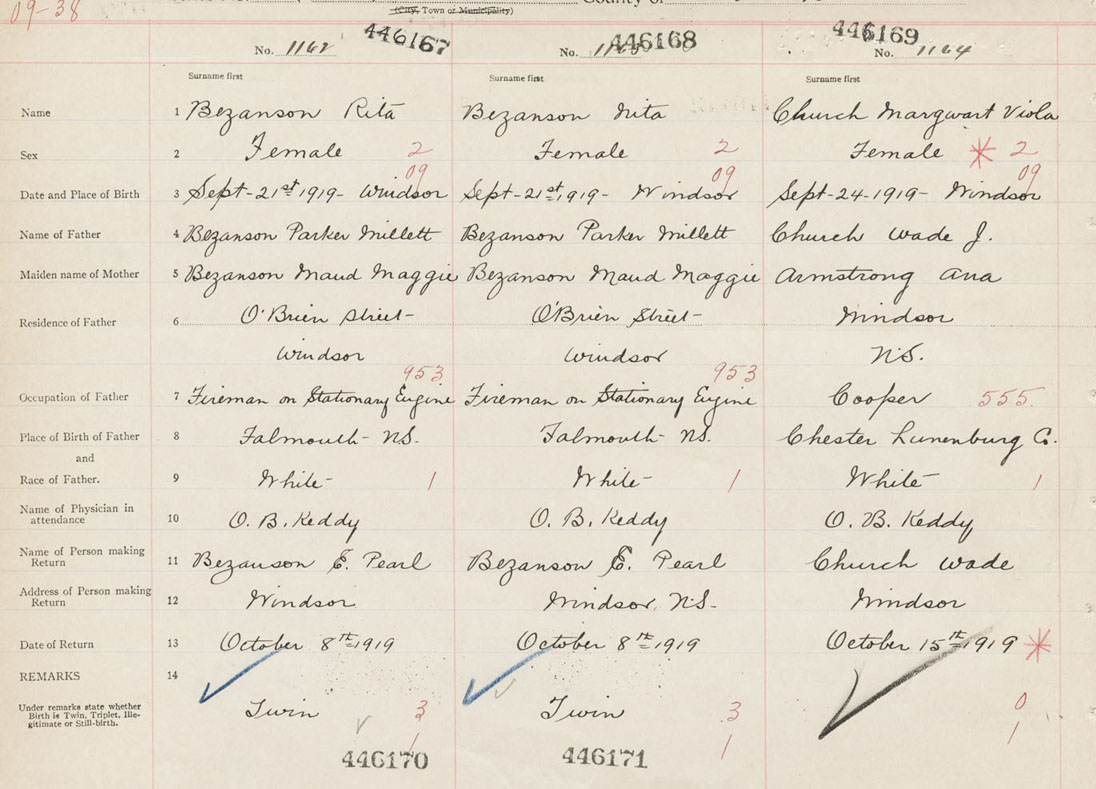 09-38
(City, Town or Municipality)
County of
446167 446168 446169
No. 1162 No. 1163 No. 1164
Surname first Surname first Surname first
Name 1 Bezanson Rita Bezanson Nita Church Margwart Viola
Sex 2 Female 2 Female 2 Female * 2
09 09 09
Date and Place of Birth 3 Sept-21st 1919- Windsor Sept-21st 1919- Windsor Sept-24-1919- Windsor
Name of Father 4 Bezanson Parker Millett Bezanson Parker Millett Church Wade J.
Maiden name of Mother 5 Bezanson Maud Maggie Bezanson Maud Maggie Armstrong Ana
Residence of Father 6 O'Brien Street- O'Brien Street- Windsor
Windsor Windsor N.S.
953 953
Occupation of Father 7 Fireman on Stationary Engine Fireman on Stationary Engine Cooper 555.
Place of Birth of Father 8 Falmouth- N.S. Falmouth- N.S. Chester Lunenburg Co.
and
Race of Father. 9 White- 1 White- 1 White- 1
Name of Physician in
attendance 10 O. B. Keddy O. B. Keddy O. B. Keddy
Name of Person making
Return 11 Bezanson E. Pearl Bezanson E. Pearl Church Wade
Address of Person making
Return 12 Windsor Windsor, N.S. Windsor
Date of Return 13 October 8th 1919 October 8th 1919 October 15th 1919 *
REMARKS 14
Under remarks state whether
Birth is Twin, Triplet, Ille-
gitimate or Still-birth.
Twin 3 Twin 3 0
1 1 1
446170 446171